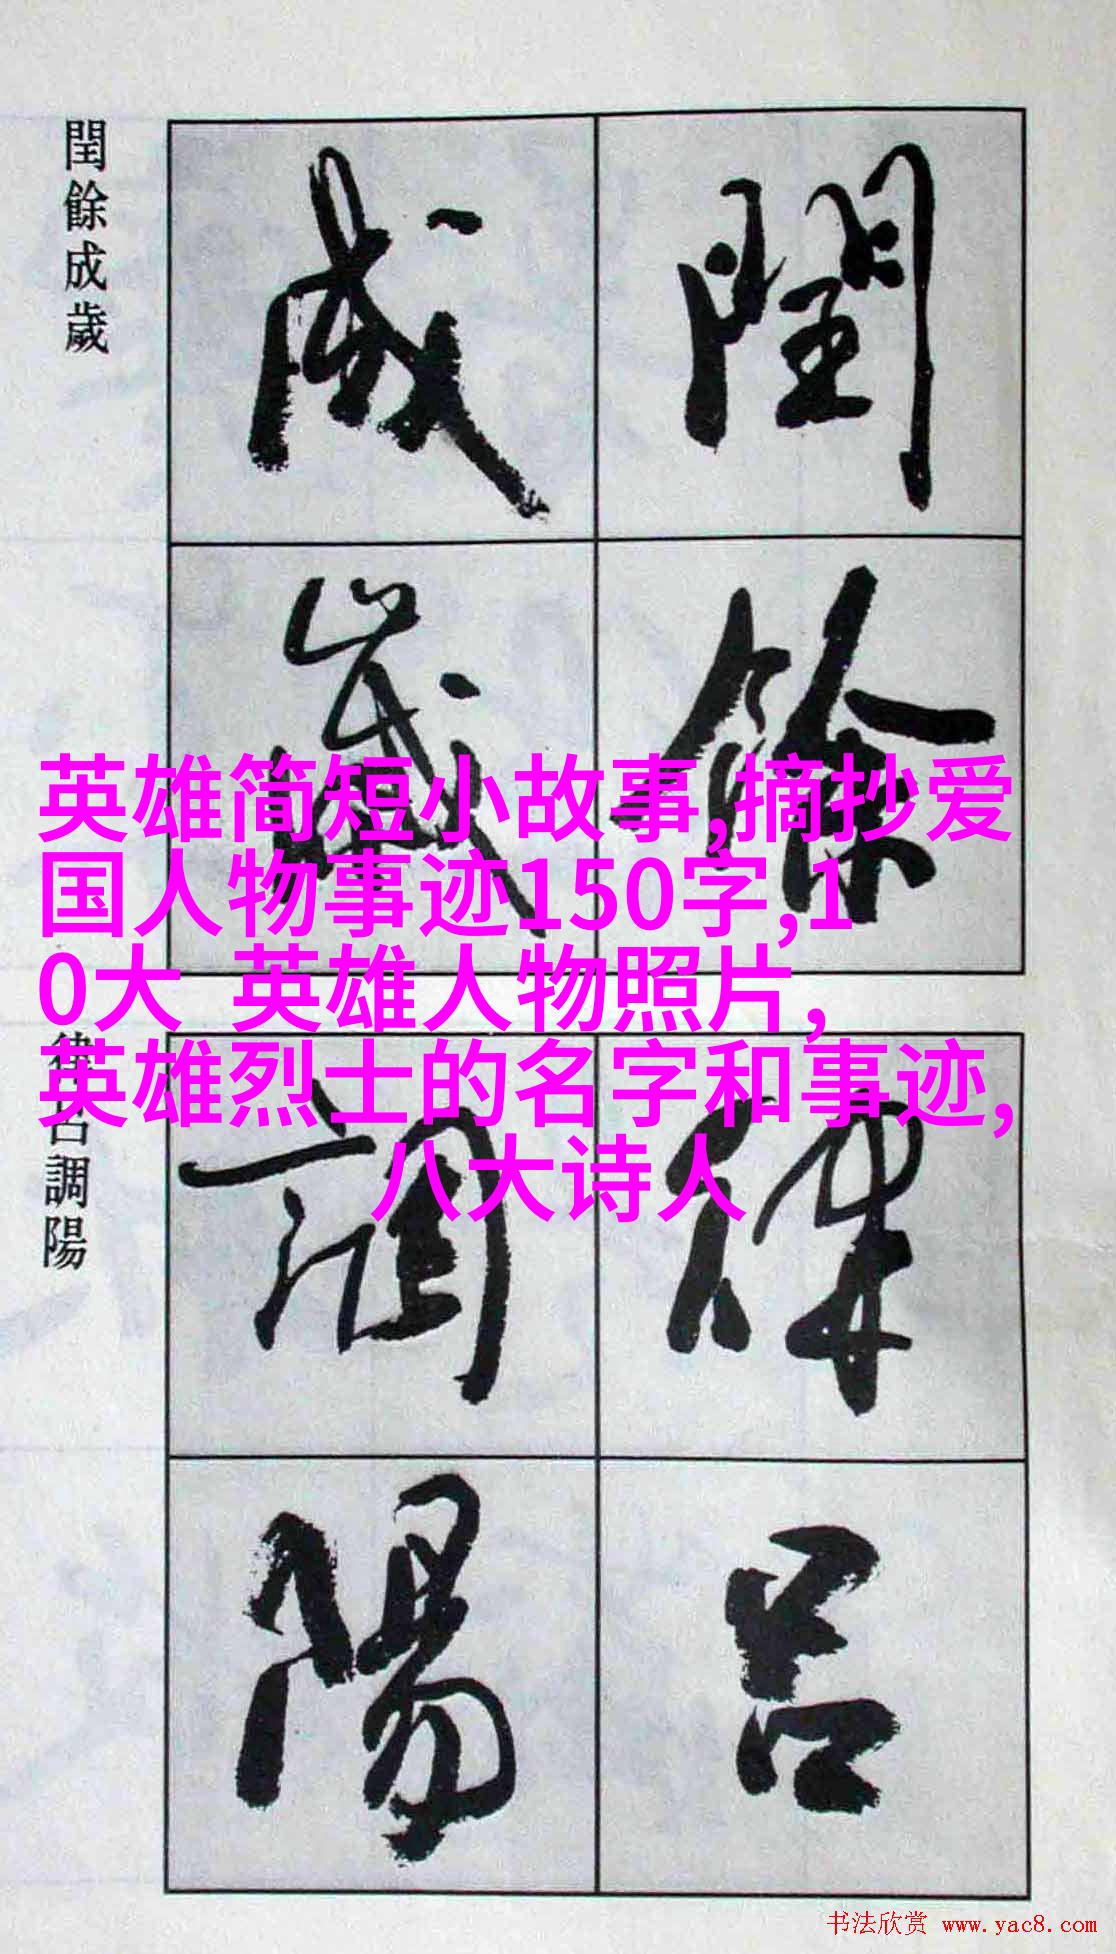 閏餘成歲
閏餘
成歲
英雄简短小故事,摘抄爱
国人物事迹150字,1
0大 英雄人物照片,
英雄烈士的名字和事迹,
八大诗人
律呂調陽
律呂
調陽
书法欣赏 www.yac8.com